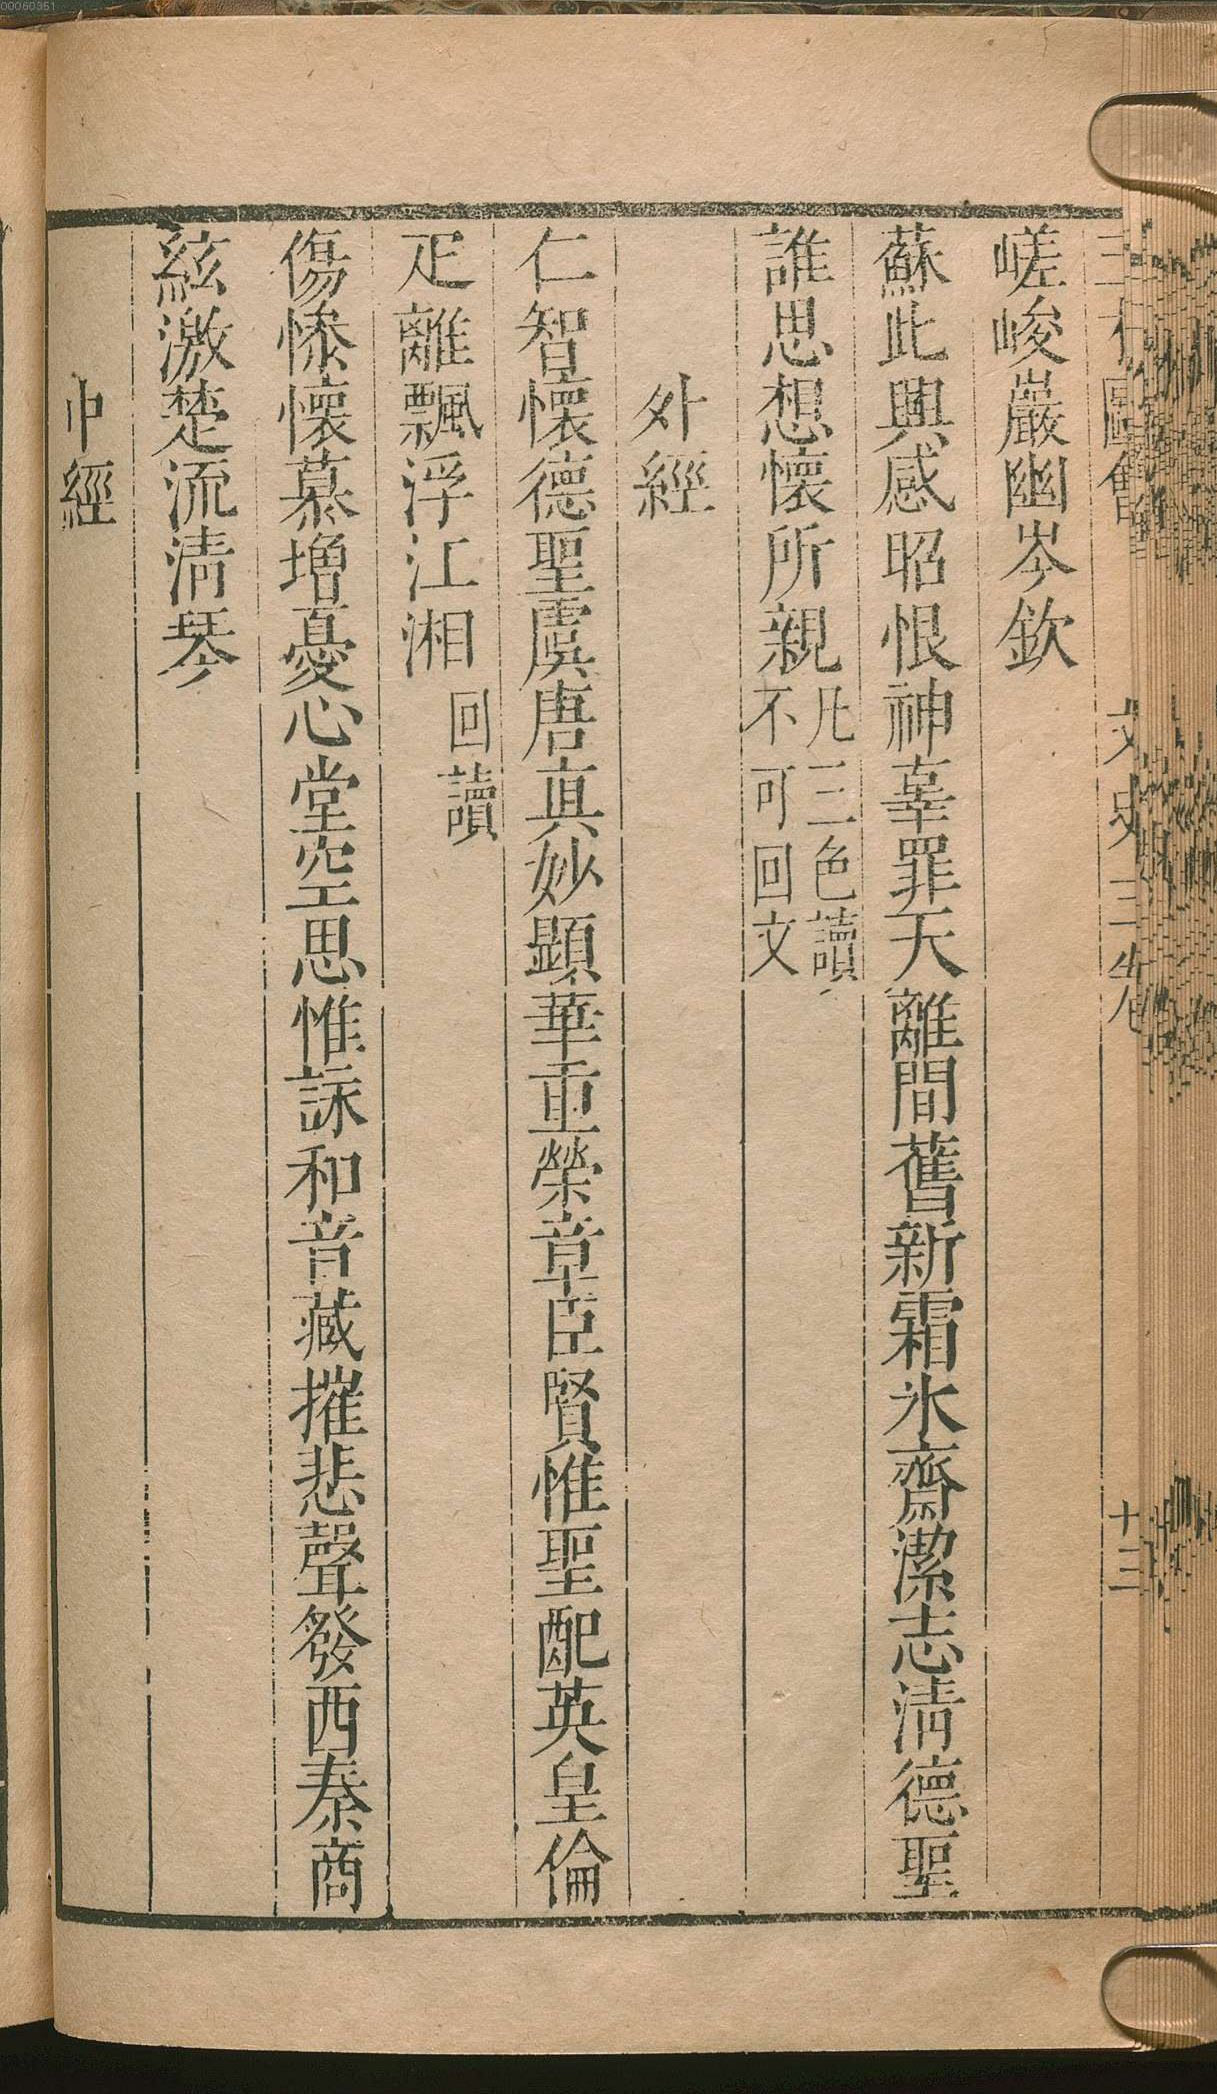 00060351
三才圖會 文史三卷 十三
嵯峻巖幽岑欽
蘇此興感昭恨神辜罪天離間舊新霜氷齋潔志淸德聖
誰思想懷所親凡三色讀不可回文
外經
仁智懷德聖虞唐眞妙顯華重榮章臣賢惟聖配英皇倫
疋離飄浮江湘回讀
傷慘懷慕增憂心堂空思惟詠和音藏摧悲聲發西秦商
絃激楚流淸琴
中經